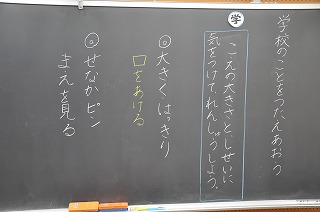 学校のことをつたえあおう
学
こえの大きさとしせいに
気をつけて、れんしゅうしよう。
◎大きくはっきり
口をあける
◎せなかピン
まえを見る